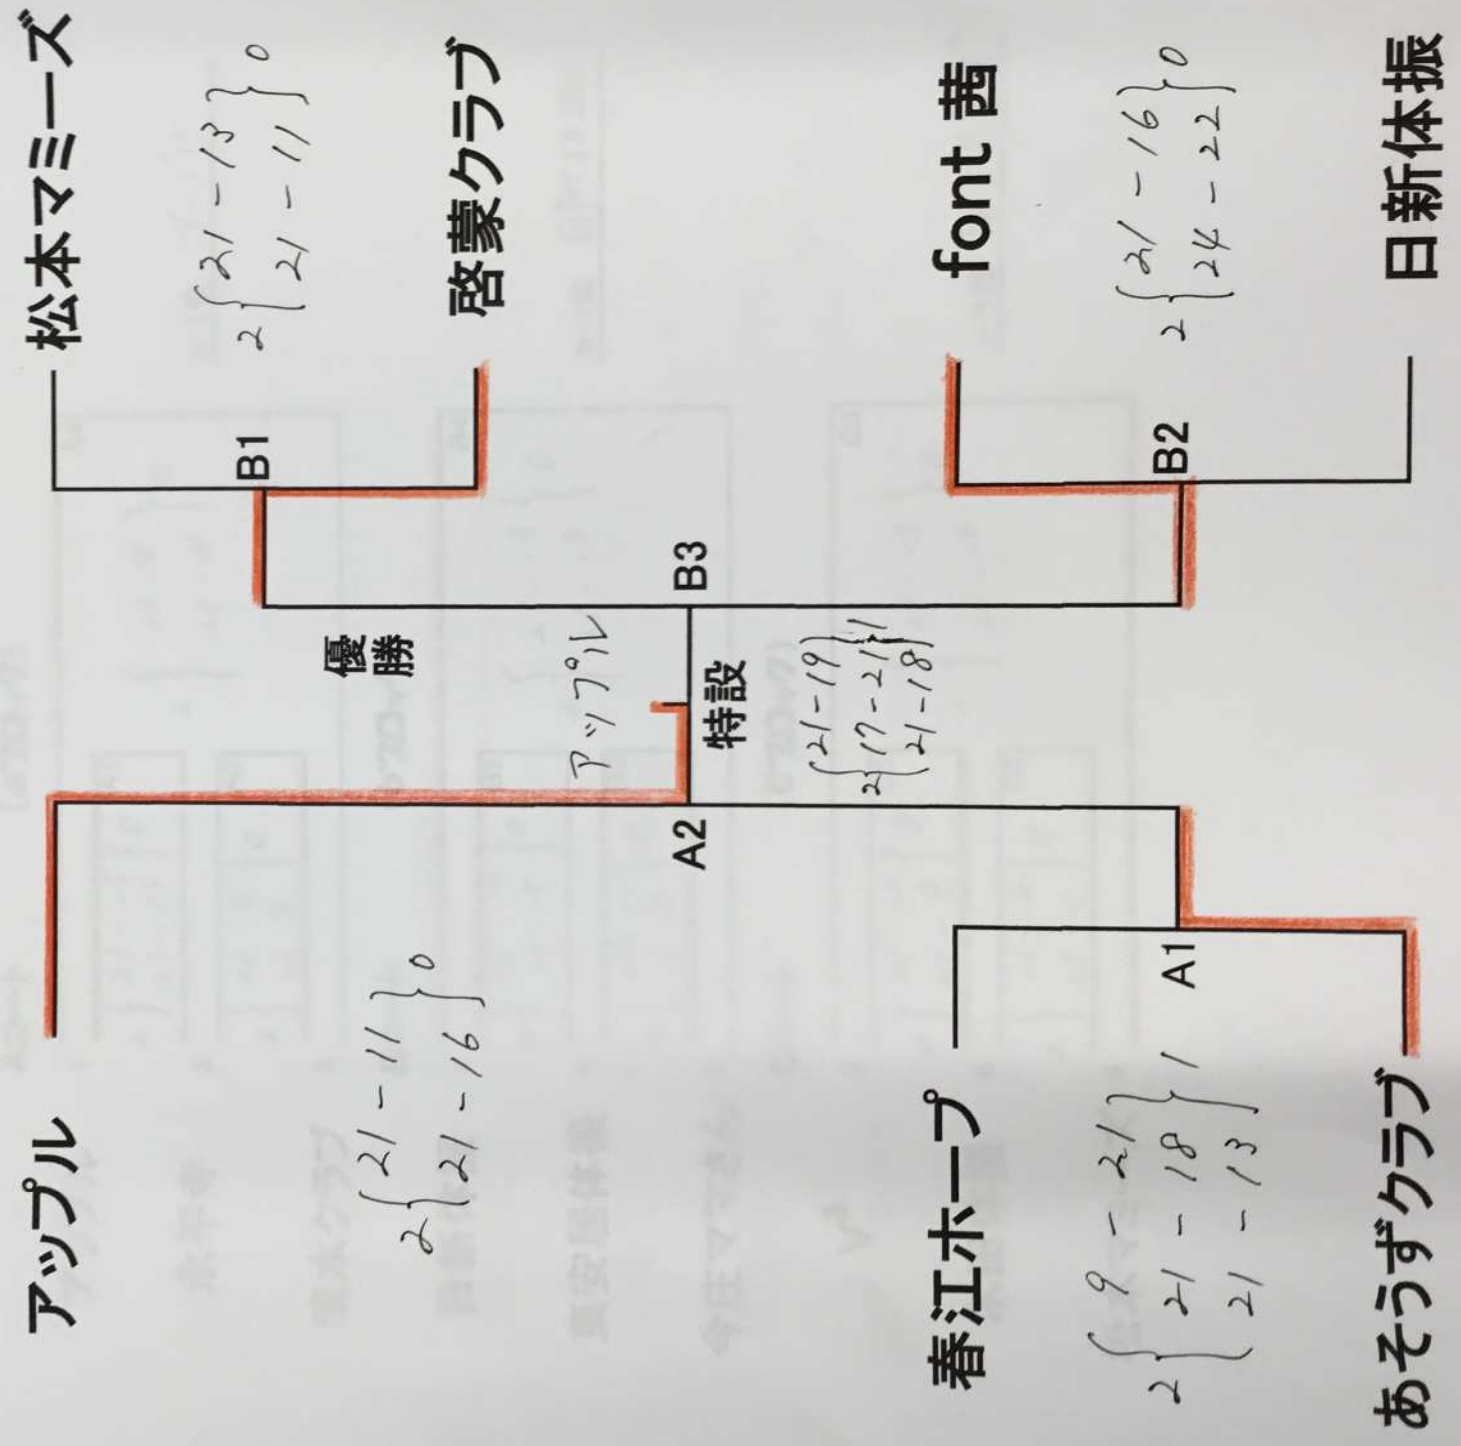 アップル
2 { 21 - 11 } 0
21 - 16
春江ホープ
2 { 9 - 21 } 1
21 - 18
21 - 13
あそうずクラブ
A1
A2
優勝
アップル
特設
2 { 21 - 19 } 1
17 - 21
21 - 18
B3
B1
B2
松本マミーズ
2 { 21 - 13 } 0
21 - 11
啓蒙クラブ
font 茜
2 { 21 - 16 } 0
24 - 22
日新体振